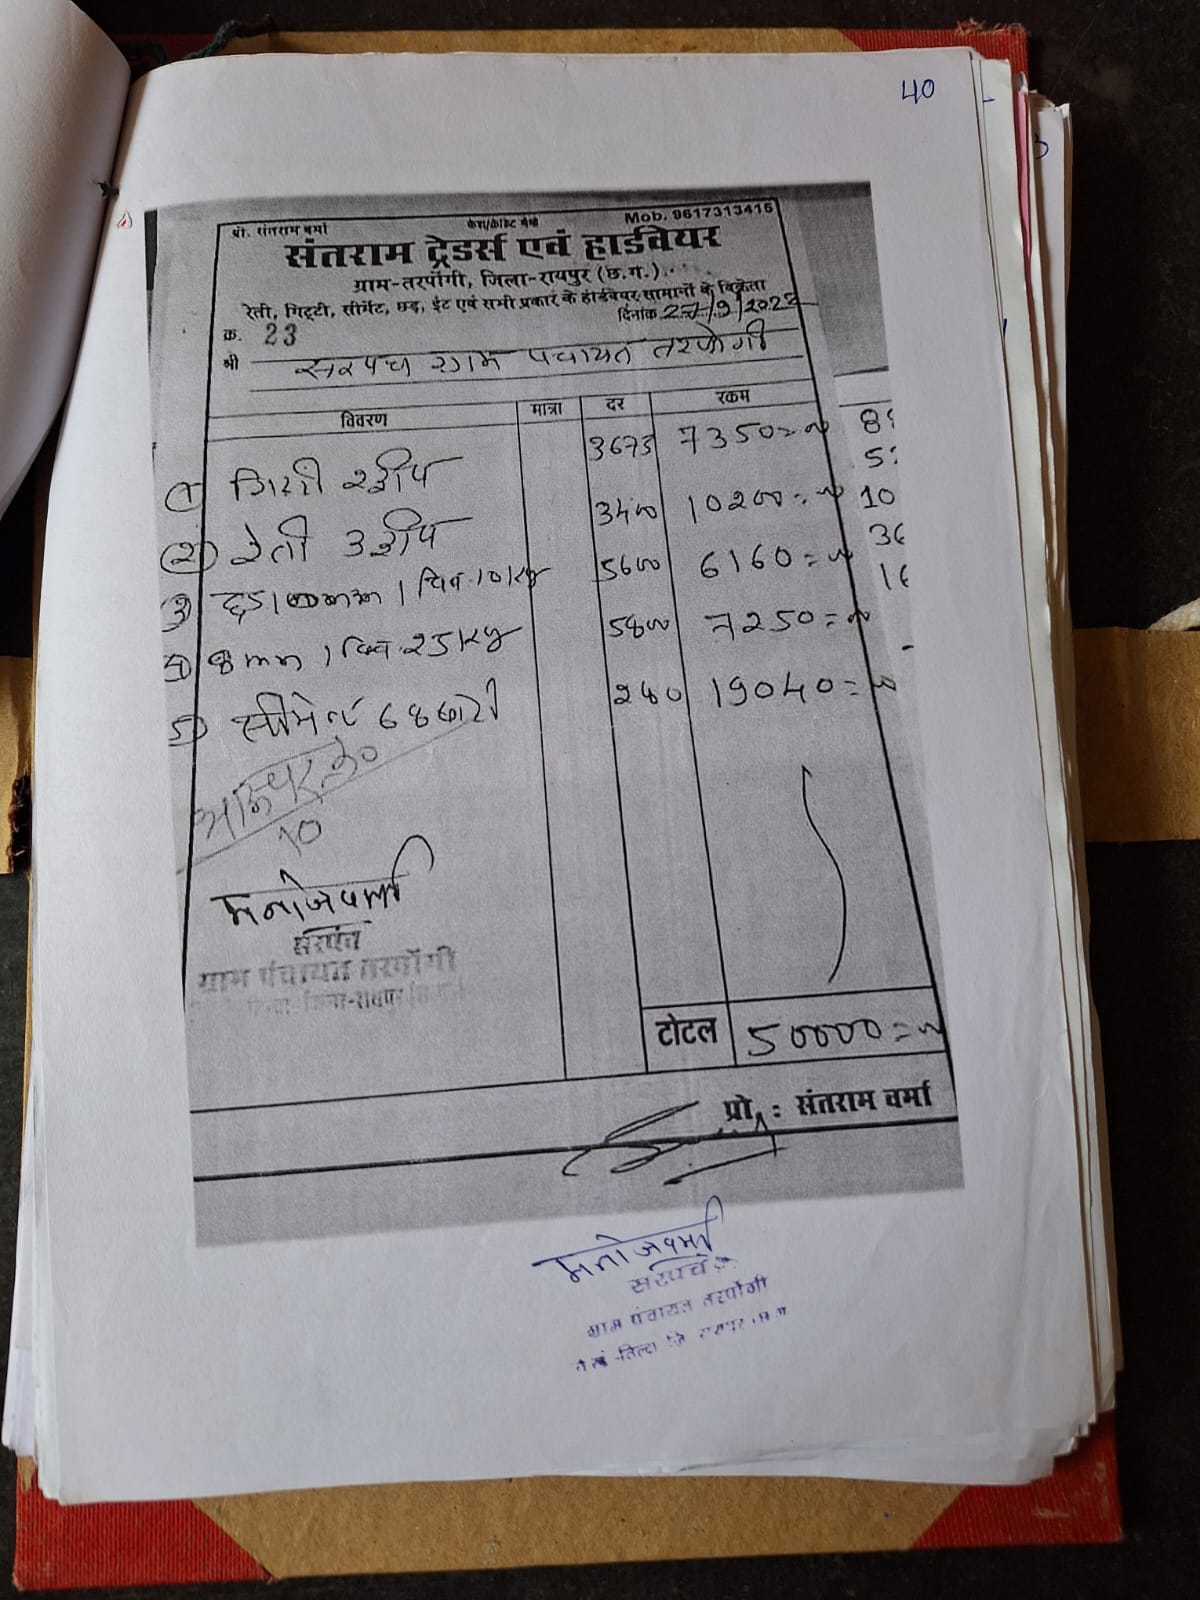 40
प्रो. संतराम वर्मा
केश/क्रेडिट मेमो
Mob. 9617313415
संतराम ट्रेडर्स एवं हार्डवेयर
ग्राम-तरपोंगी, जिला-रायपुर (छ.ग.)
रेती, गिट्टी, सीमेंट, छड़, ईट एवं सभी प्रकार के हार्डवेयर सामानों के विक्रेता
क्र. 23 दिनांक 27/9/2022
श्री सरपंच ग्राम पंचायत तरपोंगी
विवरण मात्रा दर रकम
① गिट्टी 2 ट्रीप 3675 7350=00
② रेती 3 ट्रीप 3400 10200=00
③ छड़ 10mm 1 क्विं. 10 kg 5600 6160=00
④ 8mm 1 क्विं. 25 kg 5800 7250=00
⑤ सीमेन्ट 68 बोरी 280 19040=00
10
मनोज वर्मा
सरपंच
ग्राम पंचायत तरपोंगी
टोटल 50000=00
प्रो. : संतराम वर्मा
मनोज वर्मा
सरपंच
ग्राम पंचायत तरपोंगी